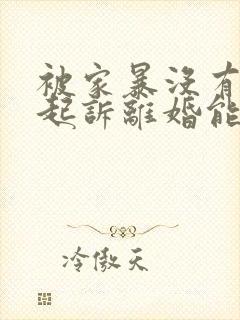 被家暴沒有
起訴離婚能
冷傲天